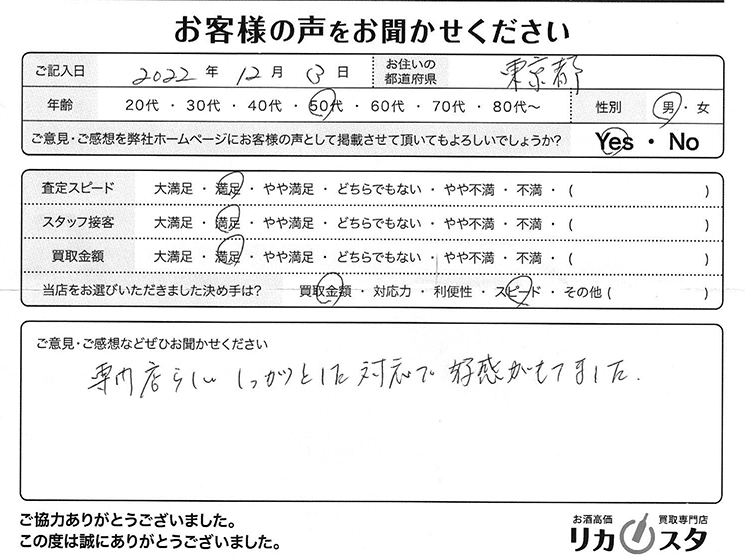 お客様の声をお聞かせください
ご記入日 2022 年 12 月 3 日 お住いの都道府県 東京都
年齢 20代 ・ 30代 ・ 40代 ・ 50代 ・ 60代 ・ 70代 ・ 80代〜 性別 男 ・ 女
ご意見・ご感想を弊社ホームページにお客様の声として掲載させて頂いてもよろしいでしょうか? Yes ・ No
査定スピード 大満足 ・ 満足 ・ やや満足 ・ どちらでもない ・ やや不満 ・ 不満 ・ ( )
スタッフ接客 大満足 ・ 満足 ・ やや満足 ・ どちらでもない ・ やや不満 ・ 不満 ・ ( )
買取金額 大満足 ・ 満足 ・ やや満足 ・ どちらでもない ・ やや不満 ・ 不満 ・ ( )
当店をお選びいただきました決め手は? 買取金額 ・ 対応力 ・ 利便性 ・ スピード ・ その他 ( )
ご意見・ご感想などぜひお聞かせください
専門店らしい しっかりとした 対応で 好感がもてました.
ご協力ありがとうございました。
この度は誠にありがとうございました。
お酒高価 買取専門店
リカスタ